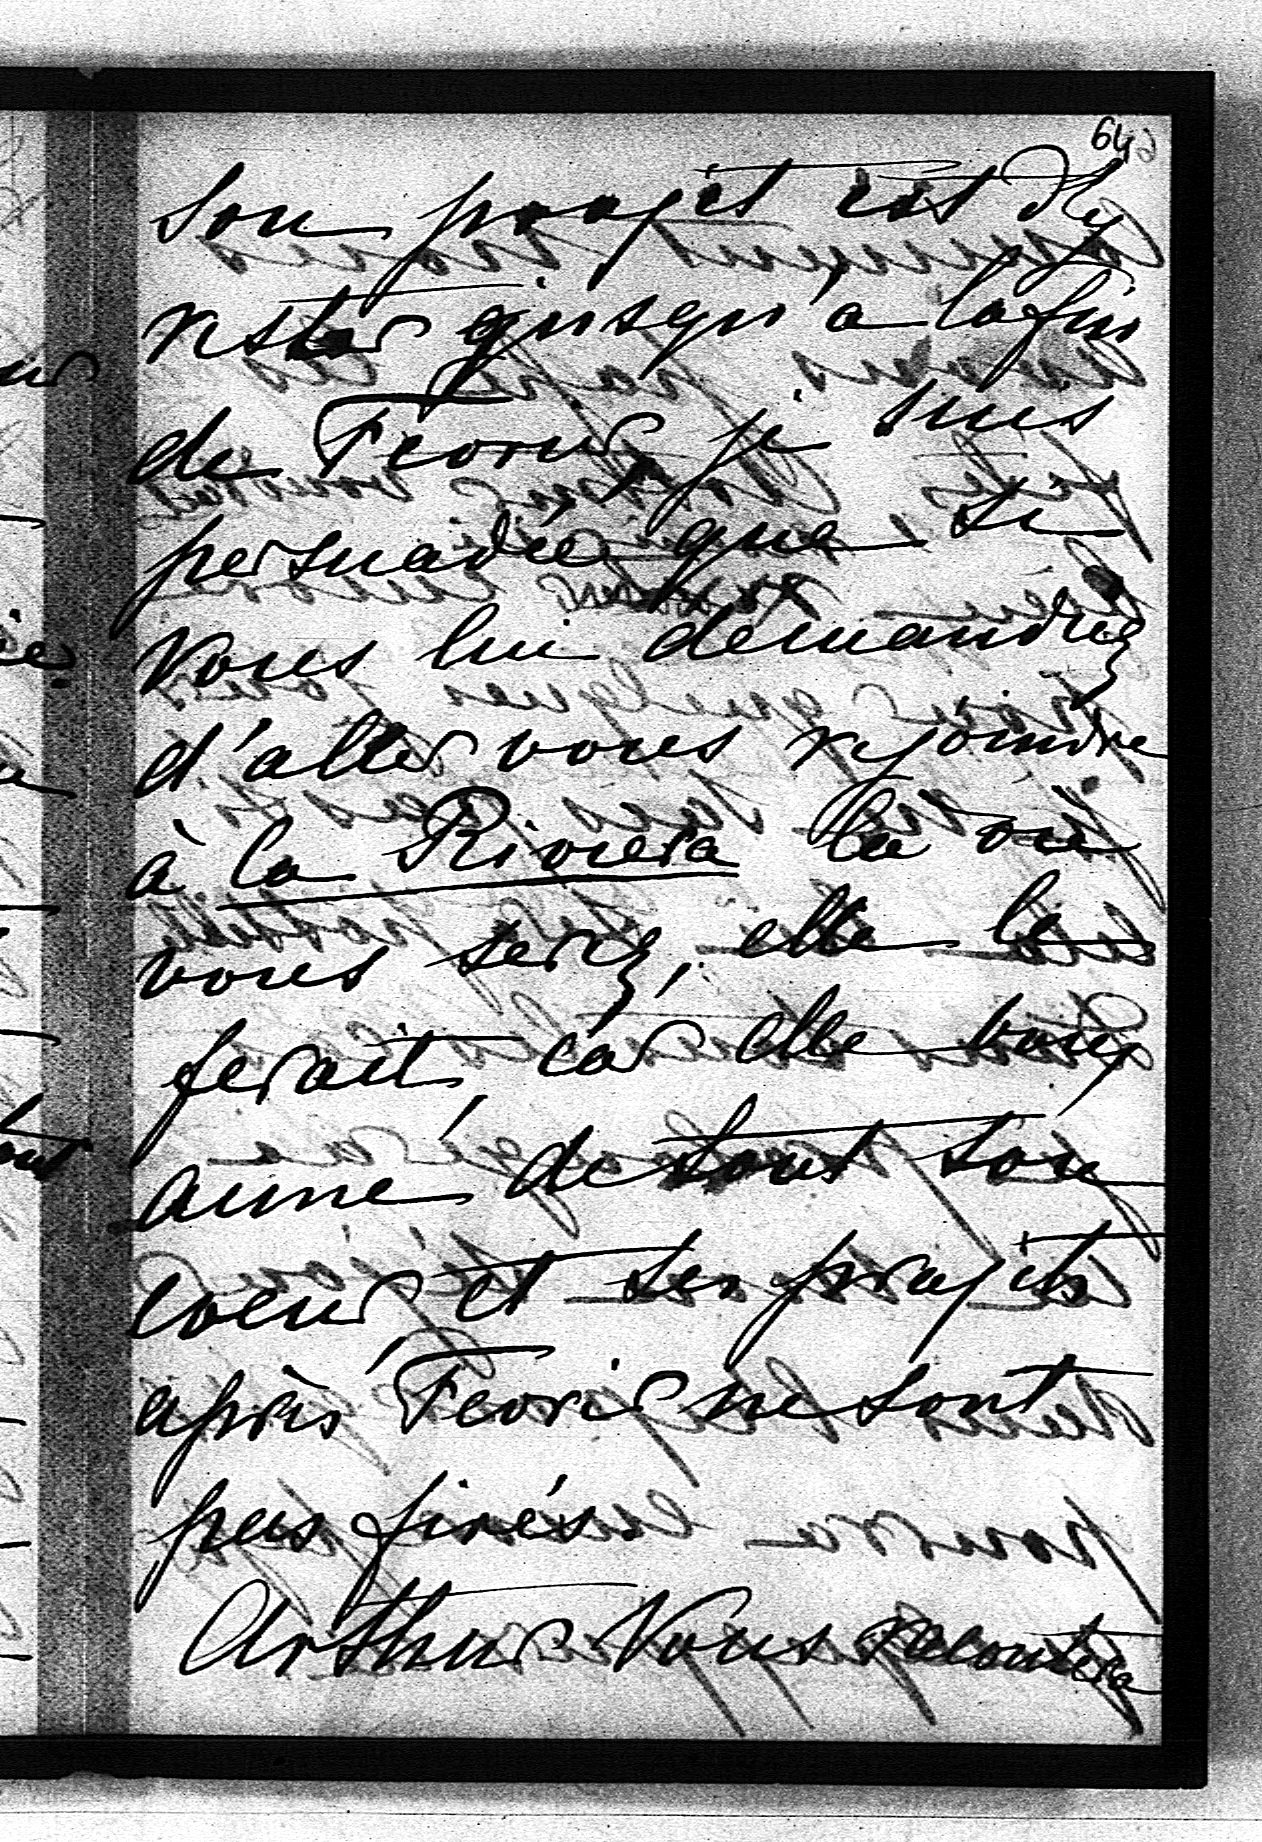 64
son projet est d'y
rester jusqu'à la fin
de Fevrier, je suis
persuadée que si
vous lui demandiez
d'aller vous rejoindre
à la Riviera là où
vous serez, elle le
ferait, car elle vous
aime de tout son
coeur et ses projets
après Fevrier ne sont
pas fixés.
Arthur Vous racontera